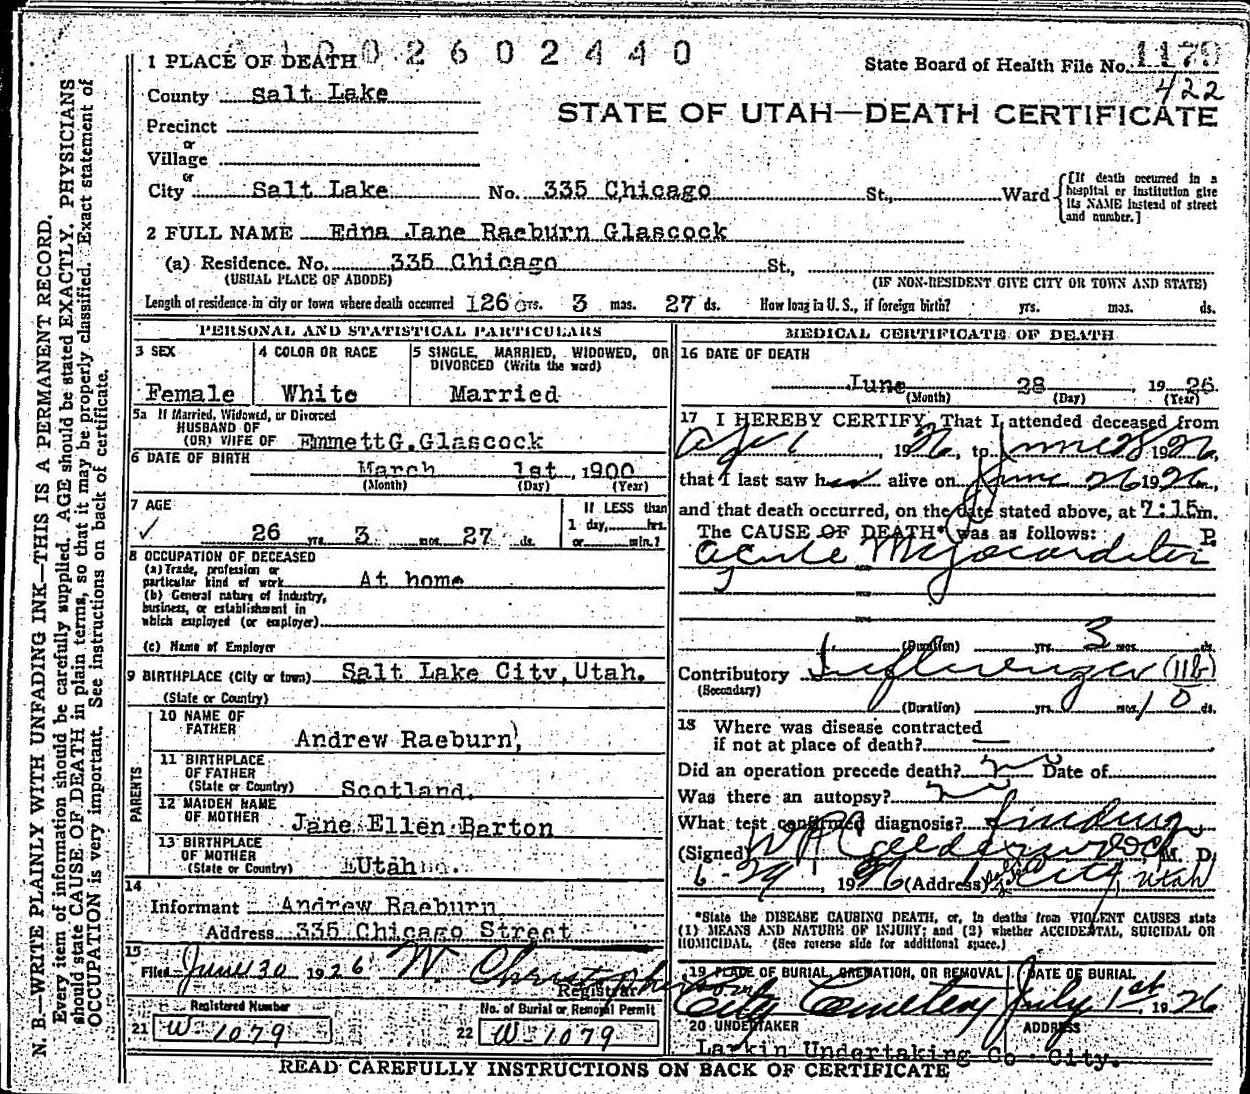 2602440
1 PLACE OF DEATH
State Board of Health File No. 1179
422
County Salt Lake
STATE OF UTAH—DEATH CERTIFICATE
Precinct
or
Village
or
City Salt Lake No. 335 Chicago St., Ward
[If death occurred in a hospital or institution give its NAME instead of street and number.]
2 FULL NAME Edna Jane Raeburn Glascock
(a) Residence. No. 335 Chicago St.,
(USUAL PLACE OF ABODE) (IF NON-RESIDENT GIVE CITY OR TOWN AND STATE)
Length of residence in city or town where death occurred 26 yrs. 3 mos. 27 ds. How long in U. S., if foreign birth? yrs. mos. ds.
PERSONAL AND STATISTICAL PARTICULARS
3 SEX
Female
4 COLOR OR RACE
White
5 SINGLE, MARRIED, WIDOWED, OR
DIVORCED (Write the word)
Married
5a If Married, Widowed, or Divorced
HUSBAND OF
(OR) WIFE OF Emmett G. Glascock
6 DATE OF BIRTH
March 1st, 1900
(Month) (Day) (Year)
7 AGE
26 yrs. 3 mos. 27 ds.
If LESS than
1 day, hrs.
or min.?
8 OCCUPATION OF DECEASED
(a) Trade, profession or
particular kind of work At home
(b) General nature of industry,
business, or establishment in
which employed (or employer)
(c) Name of Employer
9 BIRTHPLACE (City or town) Salt Lake City, Utah.
(State or Country)
PARENTS
10 NAME OF
FATHER
Andrew Raeburn,
11 BIRTHPLACE
OF FATHER
(State or Country) Scotland.
12 MAIDEN NAME
OF MOTHER
Jane Ellen Barton
13 BIRTHPLACE
OF MOTHER
(State or Country) Utah
14
Informant Andrew Raeburn
Address 335 Chicago Street
15
Filed June 30 1926 W Christopherson
Registrar
Registered Number
21 W-1079
No. of Burial or Removal Permit
22 W-1079
MEDICAL CERTIFICATE OF DEATH
16 DATE OF DEATH
June 28, 1926
(Month) (Day) (Year)
17 I HEREBY CERTIFY, That I attended deceased from
Apr 1, 1926, to June 28 1926,
that I last saw her alive on June 26 1926,
and that death occurred, on the date stated above, at 7:15 m.
The CAUSE OF DEATH* was as follows: P.
Acute Myocarditis
(Duration) yrs. 3 mos. ds.
Contributory Influenza (11b)
(Secondary)
(Duration) yrs. mos. 10 ds.
18 Where was disease contracted
if not at place of death? —
Did an operation precede death? no Date of
Was there an autopsy? no
What test confirmed diagnosis? finding
(Signed) W R Calderwood, M. D.
6-29, 1926 (Address) Salt Lake City, Utah
*State the DISEASE CAUSING DEATH, or, in deaths from VIOLENT CAUSES state
(1) MEANS AND NATURE OF INJURY; and (2) whether ACCIDENTAL, SUICIDAL OR
HOMICIDAL. (See reverse side for additional space.)
19 PLACE OF BURIAL, CREMATION, OR REMOVAL
City Cemetery
DATE OF BURIAL
July 1st, 1926
20 UNDERTAKER ADDRESS
Larkin Undertaking Co City.
READ CAREFULLY INSTRUCTIONS ON BACK OF CERTIFICATE
N. B.—WRITE PLAINLY WITH UNFADING INK—THIS IS A PERMANENT RECORD.
Every item of information should be carefully supplied. AGE should be stated EXACTLY. PHYSICIANS
should state CAUSE OF DEATH in plain terms, so that it may be properly classified. Exact statement of
OCCUPATION is very important. See instructions on back of certificate.